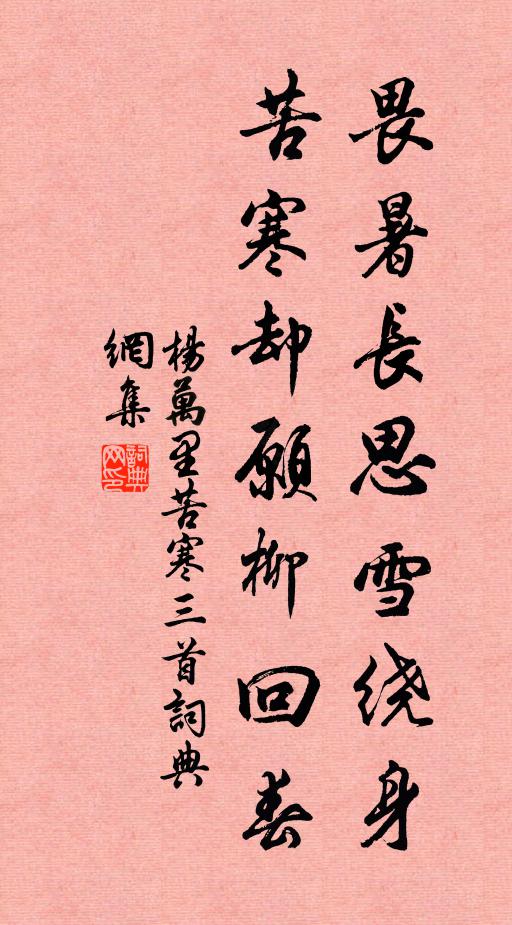 畏暑長思雪绕身
苦寒却願柳回春
楊萬里苦寒三首詞典
網集
詞典
网印